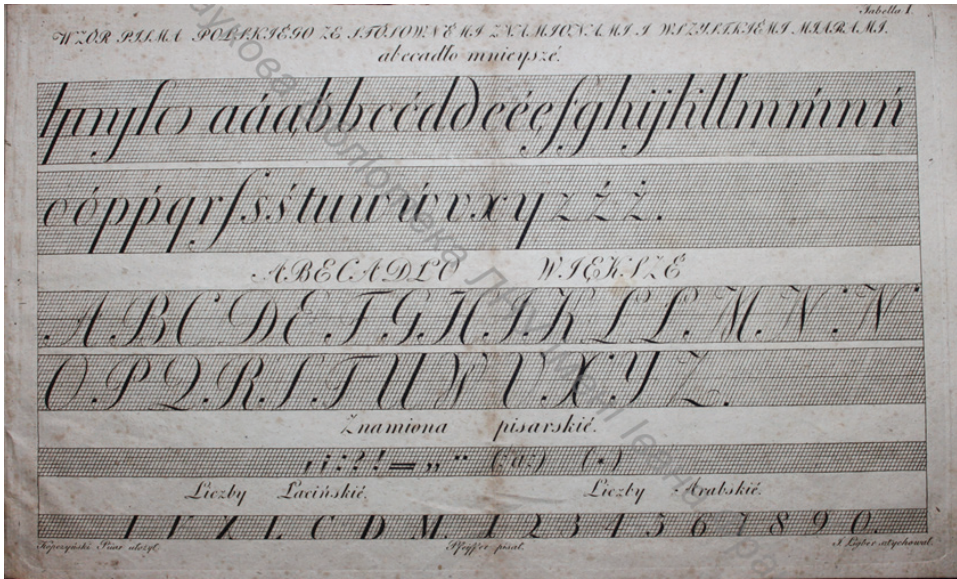 Tabella I.
WZÓR PISMA POLSKIEGO ZE STÓSOWNÉMI ZNAMIONAMI I WSZYSTKIÉMI MIARAMI.
abecadło mnieyszé.
a á ą b b́ c ć d d e é ę f g h i j k l ł m ḿ n ń
o ó p ṕ q r ſ s ś t u w ẃ v x y z ź ż.
ABECADŁO WIĘKSZÉ
A B C D E F G H I K L Ł M N Ń
O P Q R S T U W V X Y Z.
Znamiona pisarskié.
, ; : ? ! = „ " (:a:) (*)
Liczby Łacińskié. Liczby Arabskié.
I V X L C D M. 1 2 3 4 5 6 7 8 9 0.
Kopczyński Piiar ułożył. Pfeyffer pisał. J. Ligber sztychował.